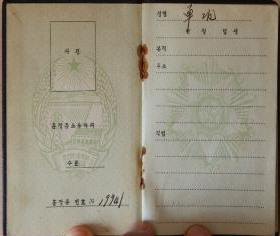 사진
훈장증소유자의
수표
훈장증 번호 № 1994
성명
년 월 일생
본적
주소
직업